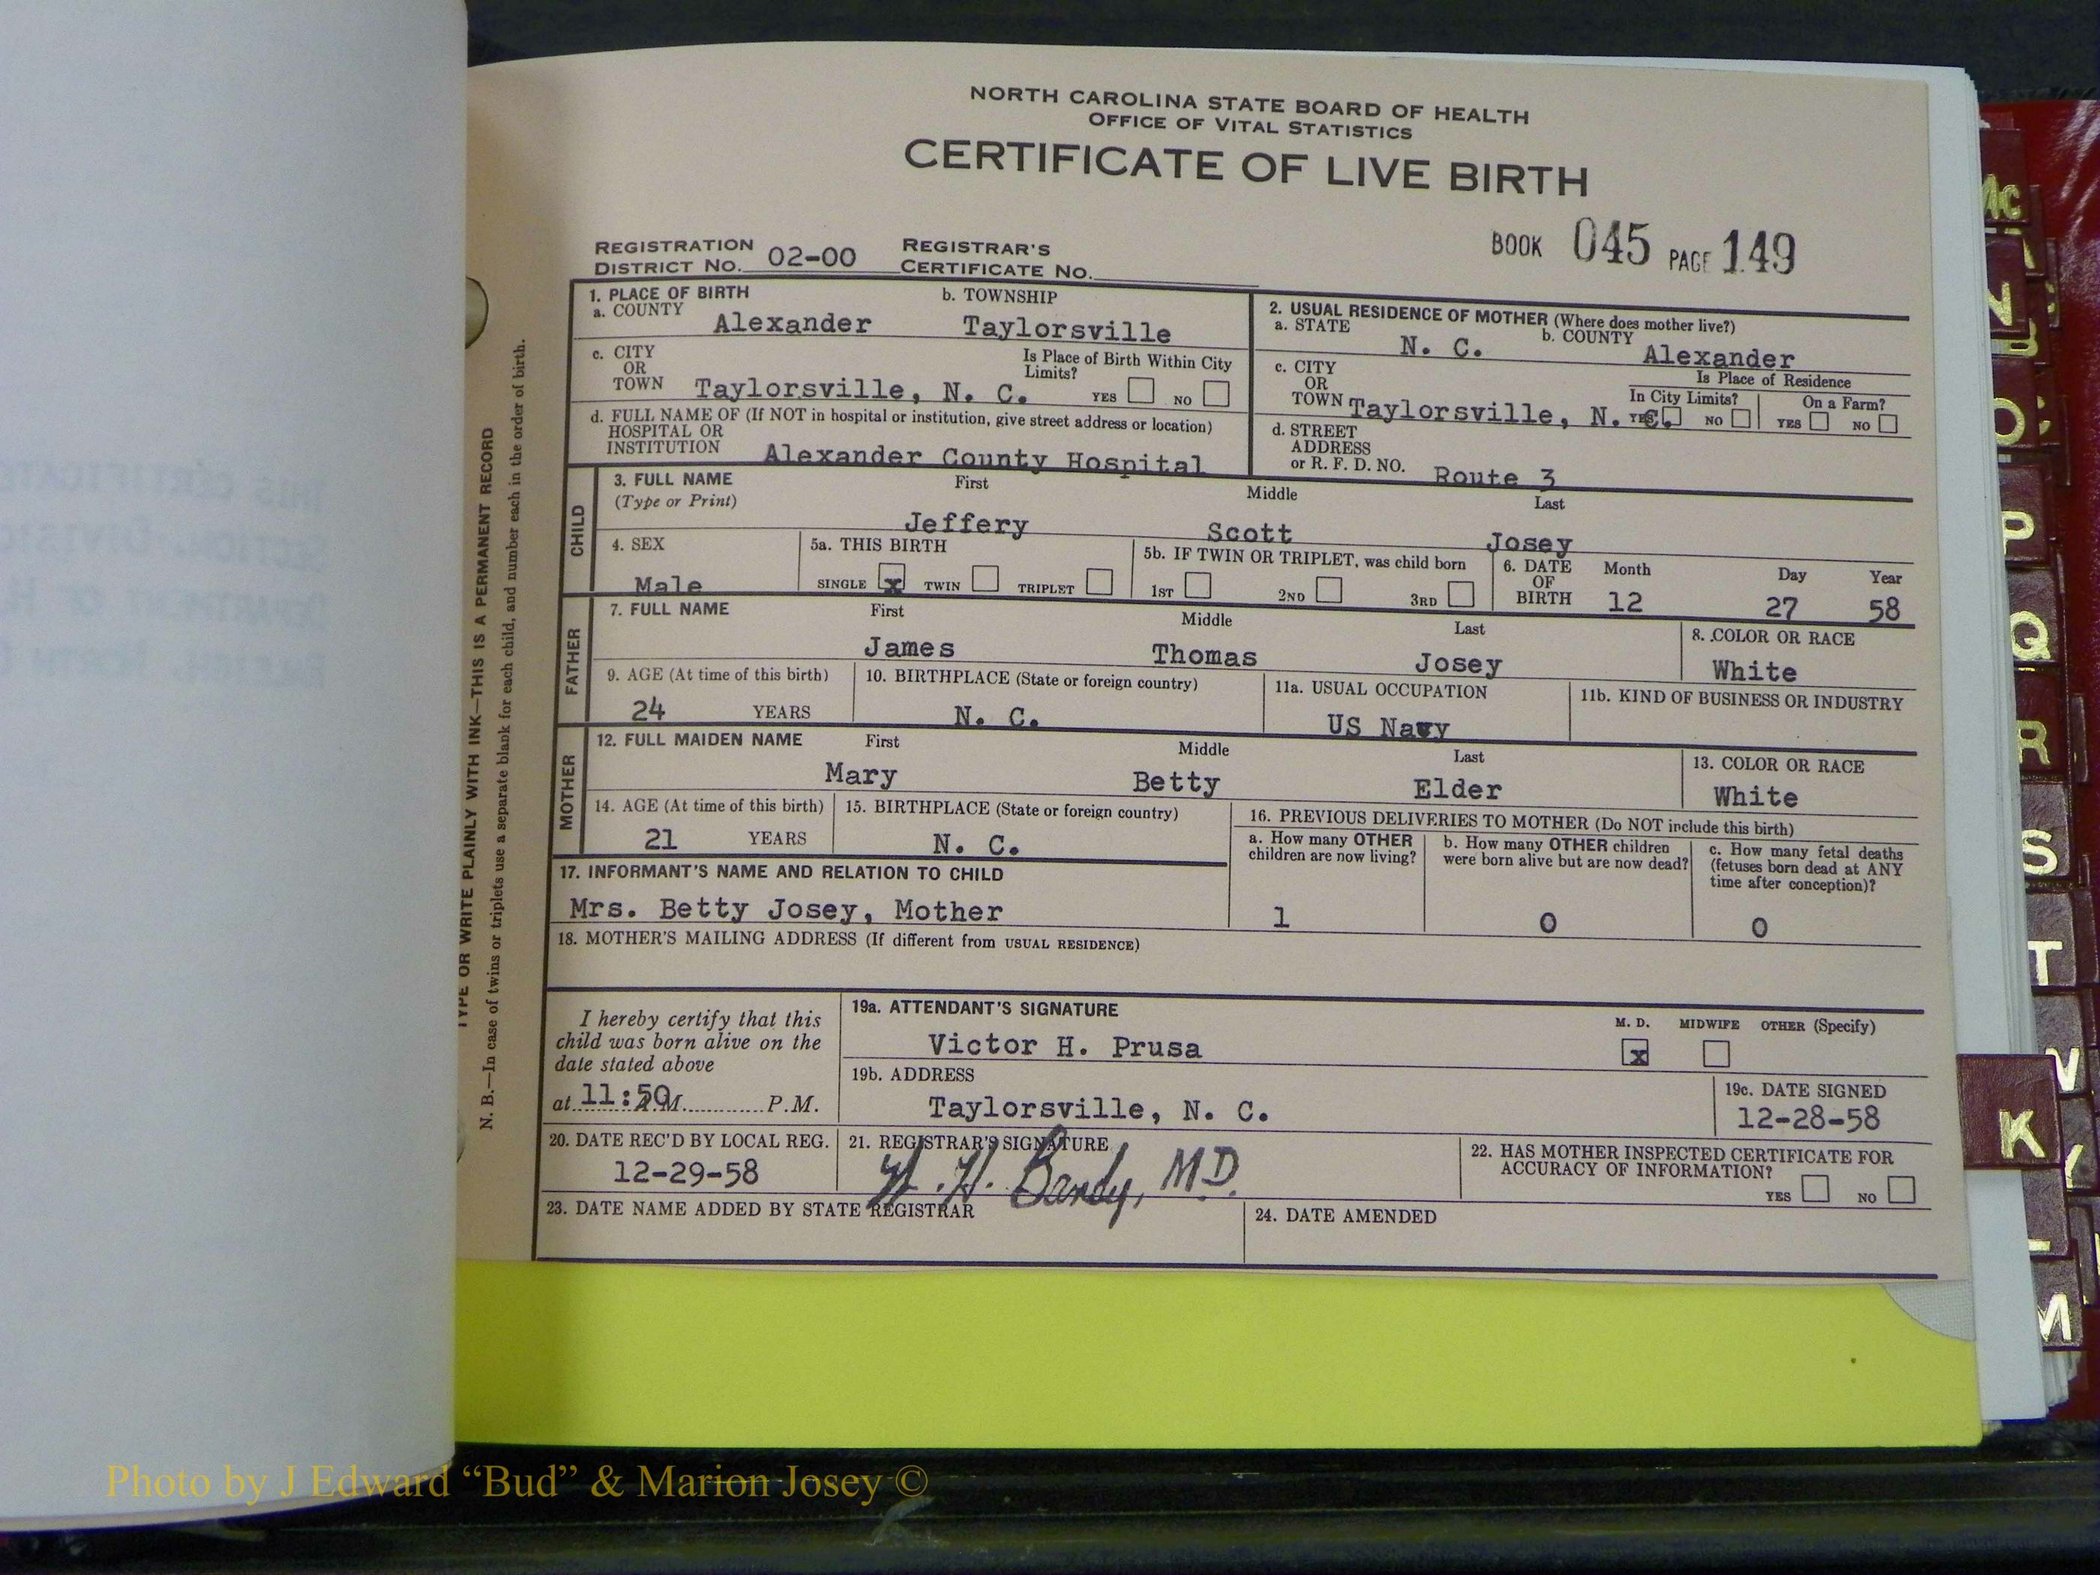 NORTH CAROLINA STATE BOARD OF HEALTH
OFFICE OF VITAL STATISTICS
CERTIFICATE OF LIVE BIRTH
BOOK 045 PAGE 149
REGISTRATION DISTRICT NO. 02-00 REGISTRAR'S CERTIFICATE NO.
TYPE OR WRITE PLAINLY WITH INK—THIS IS A PERMANENT RECORD
N. B.—In case of twins or triplets use a separate blank for each child, and number each in the order of birth.
1. PLACE OF BIRTH
a. COUNTY Alexander b. TOWNSHIP Taylorsville
c. CITY OR TOWN Taylorsville, N. C. Is Place of Birth Within City Limits? YES NO
d. FULL NAME OF (If NOT in hospital or institution, give street address or location)
HOSPITAL OR
INSTITUTION Alexander County Hospital
2. USUAL RESIDENCE OF MOTHER (Where does mother live?)
a. STATE N. C. b. COUNTY Alexander
c. CITY OR TOWN Taylorsville, N. C. Is Place of Residence
In City Limits? YES NO On a Farm? YES NO
d. STREET ADDRESS or R. F. D. NO. Route 3
CHILD
3. FULL NAME First Middle Last
(Type or Print) Jeffery Scott Josey
4. SEX Male
5a. THIS BIRTH
SINGLE x TWIN TRIPLET
5b. IF TWIN OR TRIPLET, was child born
1ST 2ND 3RD
6. DATE OF BIRTH Month Day Year
12 27 58
FATHER
7. FULL NAME First Middle Last
James Thomas Josey
8. COLOR OR RACE
White
9. AGE (At time of this birth)
24 YEARS
10. BIRTHPLACE (State or foreign country)
N. C.
11a. USUAL OCCUPATION
US Navy
11b. KIND OF BUSINESS OR INDUSTRY
MOTHER
12. FULL MAIDEN NAME First Middle Last
Mary Betty Elder
13. COLOR OR RACE
White
14. AGE (At time of this birth)
21 YEARS
15. BIRTHPLACE (State or foreign country)
N. C.
16. PREVIOUS DELIVERIES TO MOTHER (Do NOT include this birth)
a. How many OTHER children are now living?
1
b. How many OTHER children were born alive but are now dead?
0
c. How many fetal deaths (fetuses born dead at ANY time after conception)?
0
17. INFORMANT'S NAME AND RELATION TO CHILD
Mrs. Betty Josey, Mother
18. MOTHER'S MAILING ADDRESS (If different from USUAL RESIDENCE)
I hereby certify that this
child was born alive on the
date stated above
at 11:50 A.M. P.M.
19a. ATTENDANT'S SIGNATURE
Victor H. Prusa
M. D. MIDWIFE OTHER (Specify)
x
19b. ADDRESS
Taylorsville, N. C.
19c. DATE SIGNED
12-28-58
20. DATE REC'D BY LOCAL REG.
12-29-58
21. REGISTRAR'S SIGNATURE
22. HAS MOTHER INSPECTED CERTIFICATE FOR
ACCURACY OF INFORMATION?
YES NO
23. DATE NAME ADDED BY STATE REGISTRAR
24. DATE AMENDED
Mc
N
O
P
Q
R
S
T
K
L
M
Photo by J Edward “Bud” & Marion Josey ©